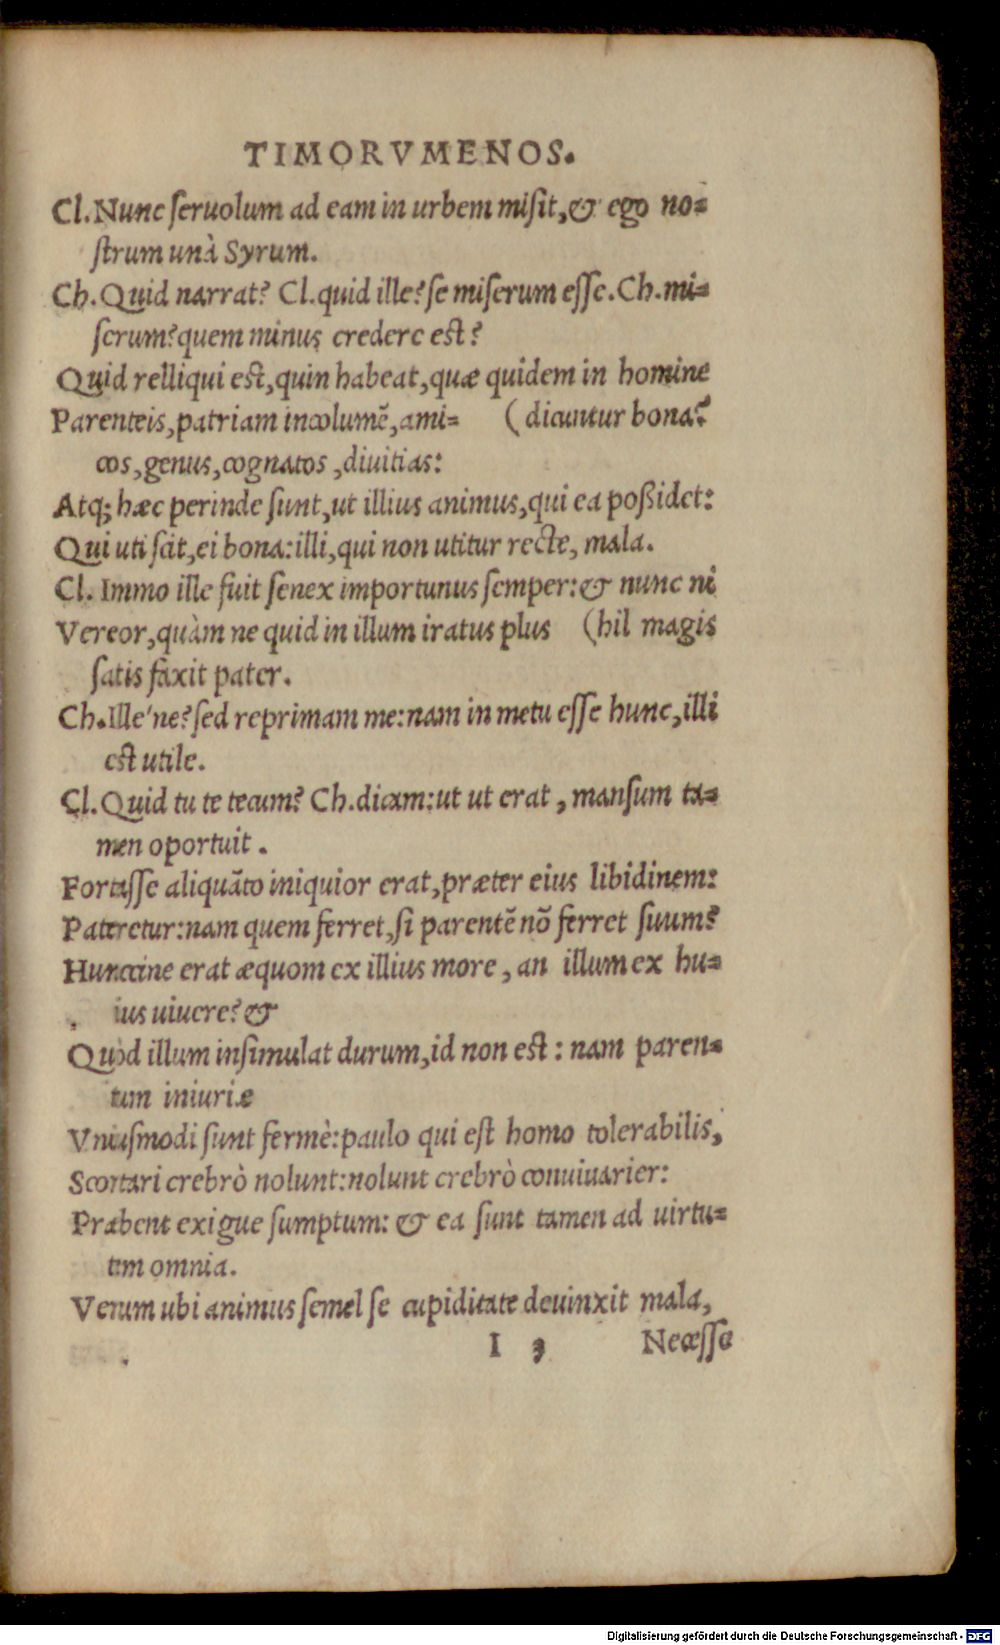 TIMORVMENOS.
Cl. Nunc ſeruolum ad eam in urbem miſit, & ego no=
ſtrum unà Syrum.
Ch. Quid narrat? Cl. quid ille? ſe miſerum eſſe. Ch. mi=
ſerum? quem minus credere eſt?
Quid relliqui eſt, quin habeat, quæ quidem in homine
Parenteis, patriam incolumẽ, ami= (dicuntur bona?
cos, genus, cognatos, diuitias:
Atq; hæc perinde ſunt, ut illius animus, qui ea poßidet:
Qui uti ſcit, ei bona: illi, qui non utitur recte, mala.
Cl. Immo ille fuit ſenex importunus ſemper: & nunc ni
Vereor, quàm ne quid in illum iratus plus (hil magis
ſatis faxit pater.
Ch. Ille'ne? ſed reprimam me: nam in metu eſſe hunc, illi
eſt utile.
Cl. Quid tu te tecum? Ch. dicam: ut ut erat, manſum ta=
men oportuit.
Fortaſſe aliquãto iniquior erat, præter eius libidinem:
Pateretur: nam quem ferret, ſi parentẽ nõ ferret ſuum?
Hunccine erat æquom ex illius more, an illum ex hu=
ius uiuere? &
Quòd illum inſimulat durum, id non eſt: nam paren=
tum iniuriæ
Vniuſmodi ſunt fermè: paulo qui eſt homo tolerabilis,
Scortari crebrò nolunt: nolunt crebrò conuiuarier:
Præbent exigue ſumptum: & ea ſunt tamen ad uirtu=
tem omnia.
Verum ubi animus ſemel ſe cupiditate deuinxit mala,
I 3 Neceſſe
Digitalisierung gefördert durch die Deutsche Forschungsgemeinschaft - DFG